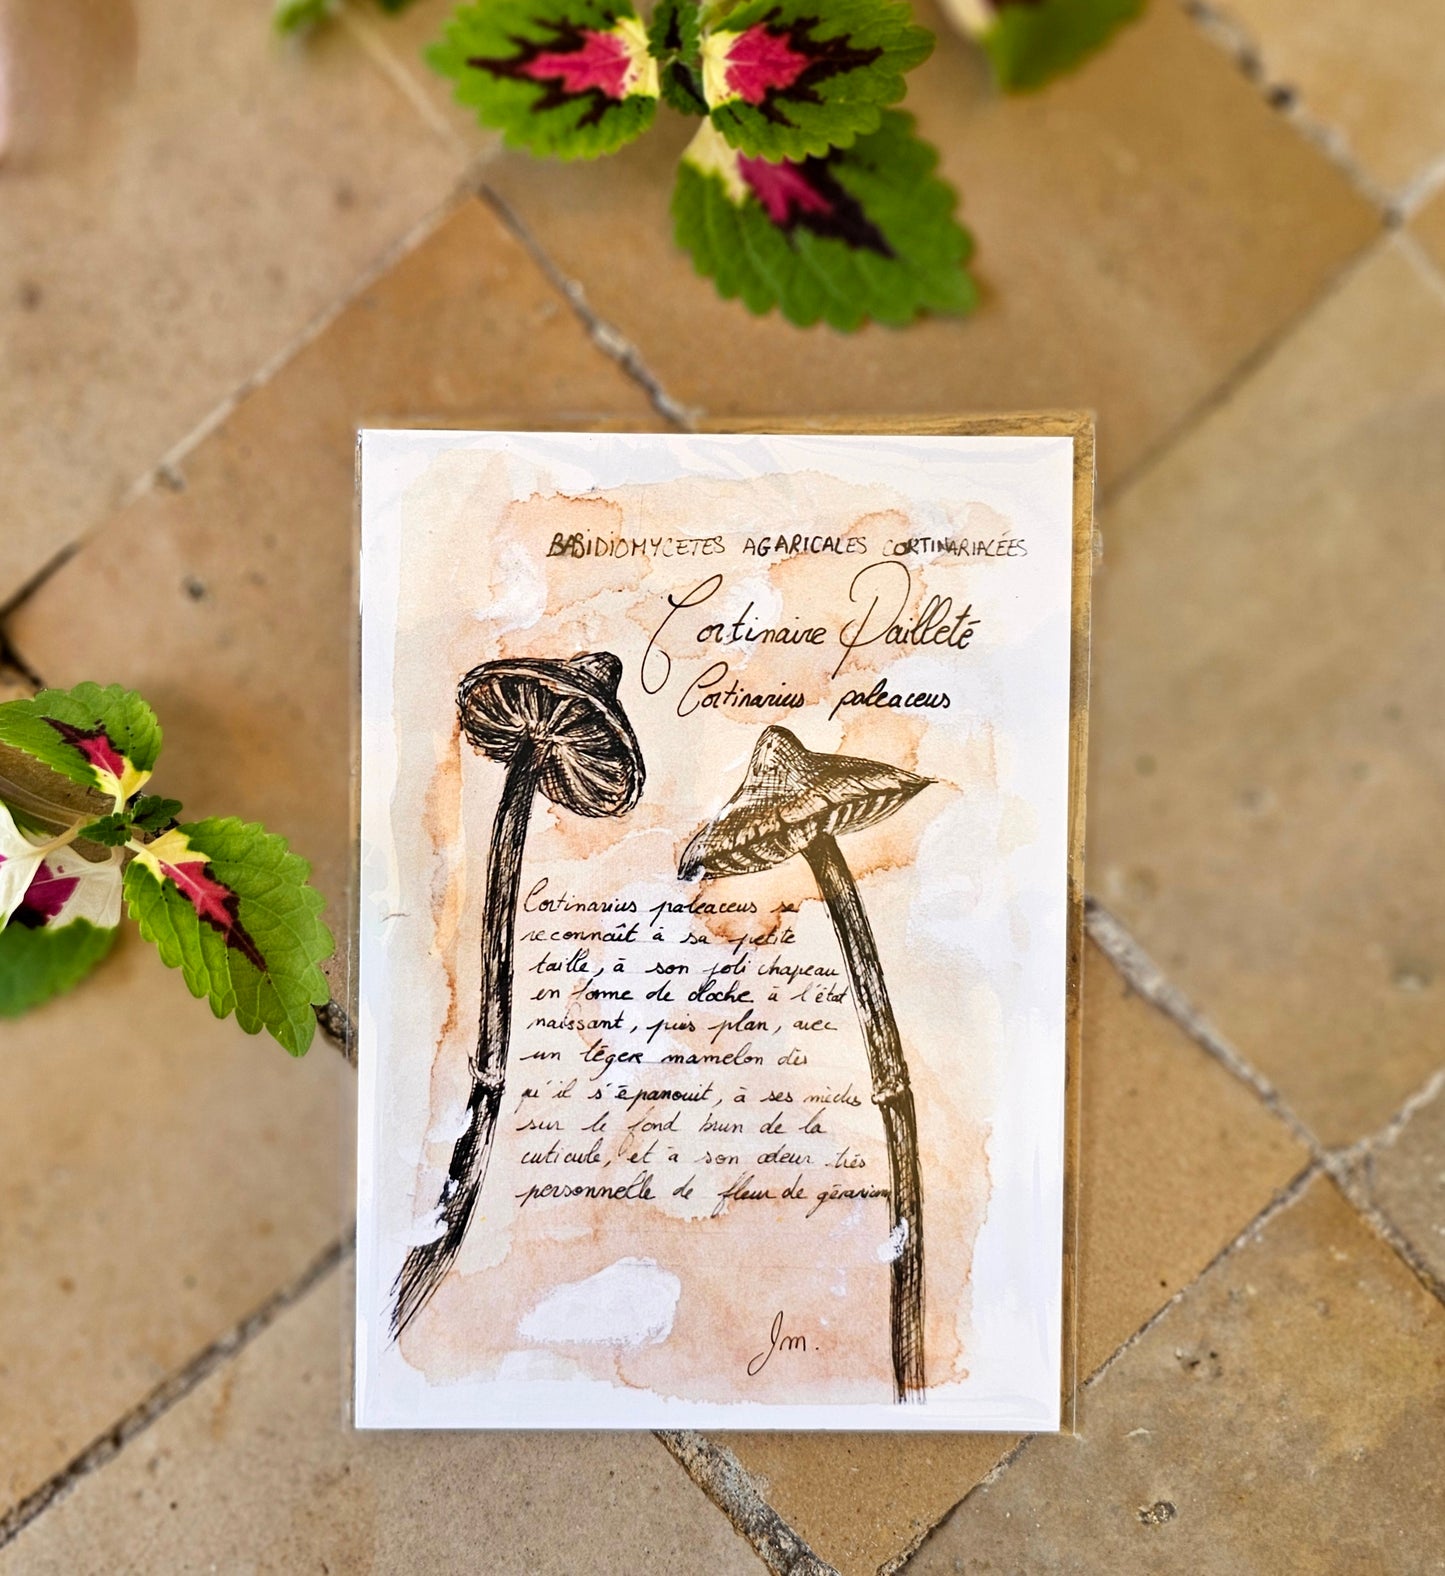 BASIDIOMYCETES AGARICALES CORTINARIACÉES
Cortinaire Pailleté
Cortinarius paleaceus
Cortinarius paleaceus se
reconnaît à sa petite
taille, à son joli chapeau
en forme de cloche à l'état
naissant, puis plan, avec
un léger mamelon dès
qu'il s'épanouit, à ses mèches
sur le fond brun de la
cuticule, et à son odeur très
personnelle de fleur de géranium
Jm.